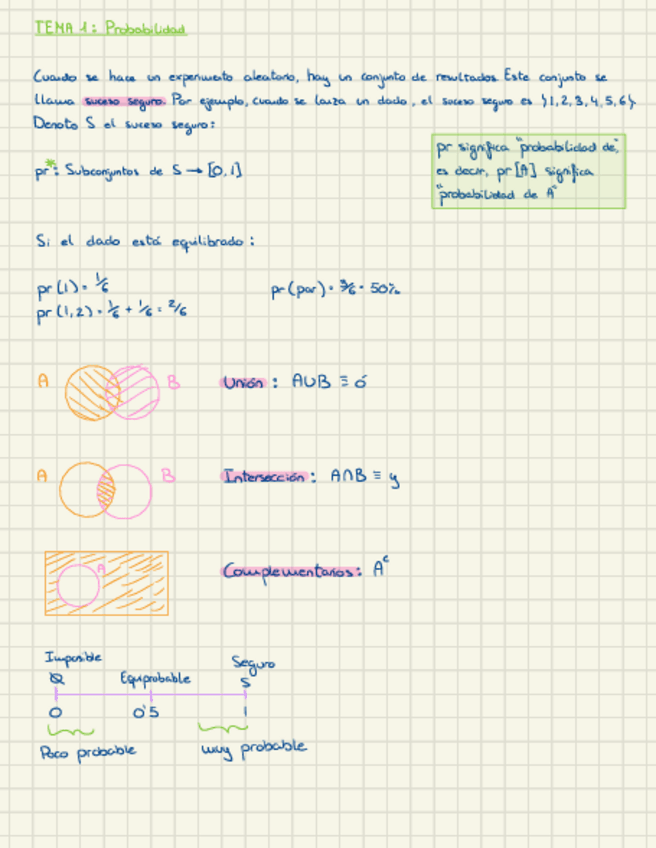 TEMA 1: Probabilidad
Cuando se hace un experimento aleatorio, hay un conjunto de resultados. Este conjunto se
llama suceso seguro. Por ejemplo, cuando se lanza un dado, el suceso seguro es {1,2,3,4,5,6}.
Denoto S el suceso seguro:
pr*: Subconjuntos de S → [0,1]
pr significa "probabilidad de",
es decir, pr[A] significa
"probabilidad de A"
Si el dado está equilibrado:
pr(1) = 1/6
pr(par) = 3/6 = 50%
pr(1,2) = 1/6 + 1/6 = 2/6
A B Unión: A∪B ≡ ó
A B Intersección: A∩B ≡ y
A Complementarios: Aᶜ
Imposible Equiprobable Seguro
Ø S
0 0'5 1
Poco probable muy probable